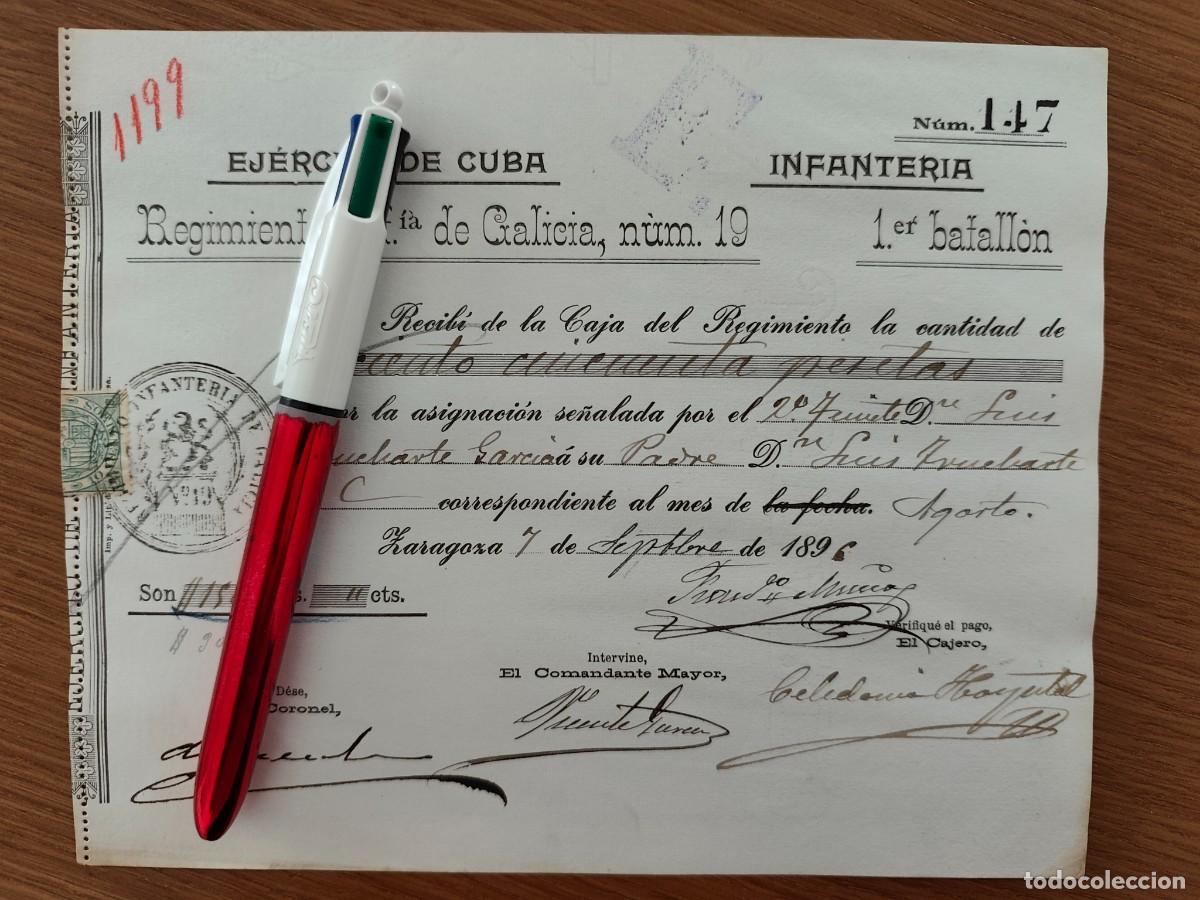 1199
Núm. 147
EJÉRC DE CUBA INFANTERIA
Regimient f.ía de Galicia, nùm. 19 1.er batallòn
Recibí de la Caja del Regimiento la cantidad de
ciento cincuenta pesetas
la asignación señalada por el 2º Tnte D.n Luis
Garcia á su Padre D.n Luis Truebarte
C correspondiente al mes de la fecha. Agosto.
Zaragoza 7 de Septbre de 1896
INFANTERIA
Nº 19
Imp. y Lit
Son $ 15 s. " cts.
Muñoz
Verifiqué el pago,
El Cajero,
Intervine,
El Comandante Mayor,
Celedonio
Dése,
Coronel,
Vicente Garcia
todocoleccion